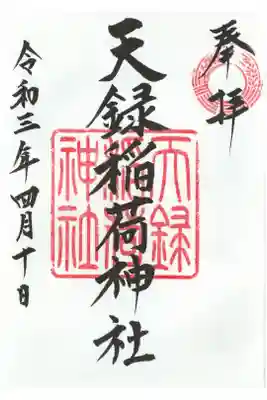 奉拝
天録稲荷神社
天録
稲荷
神社
令和三年四月十日